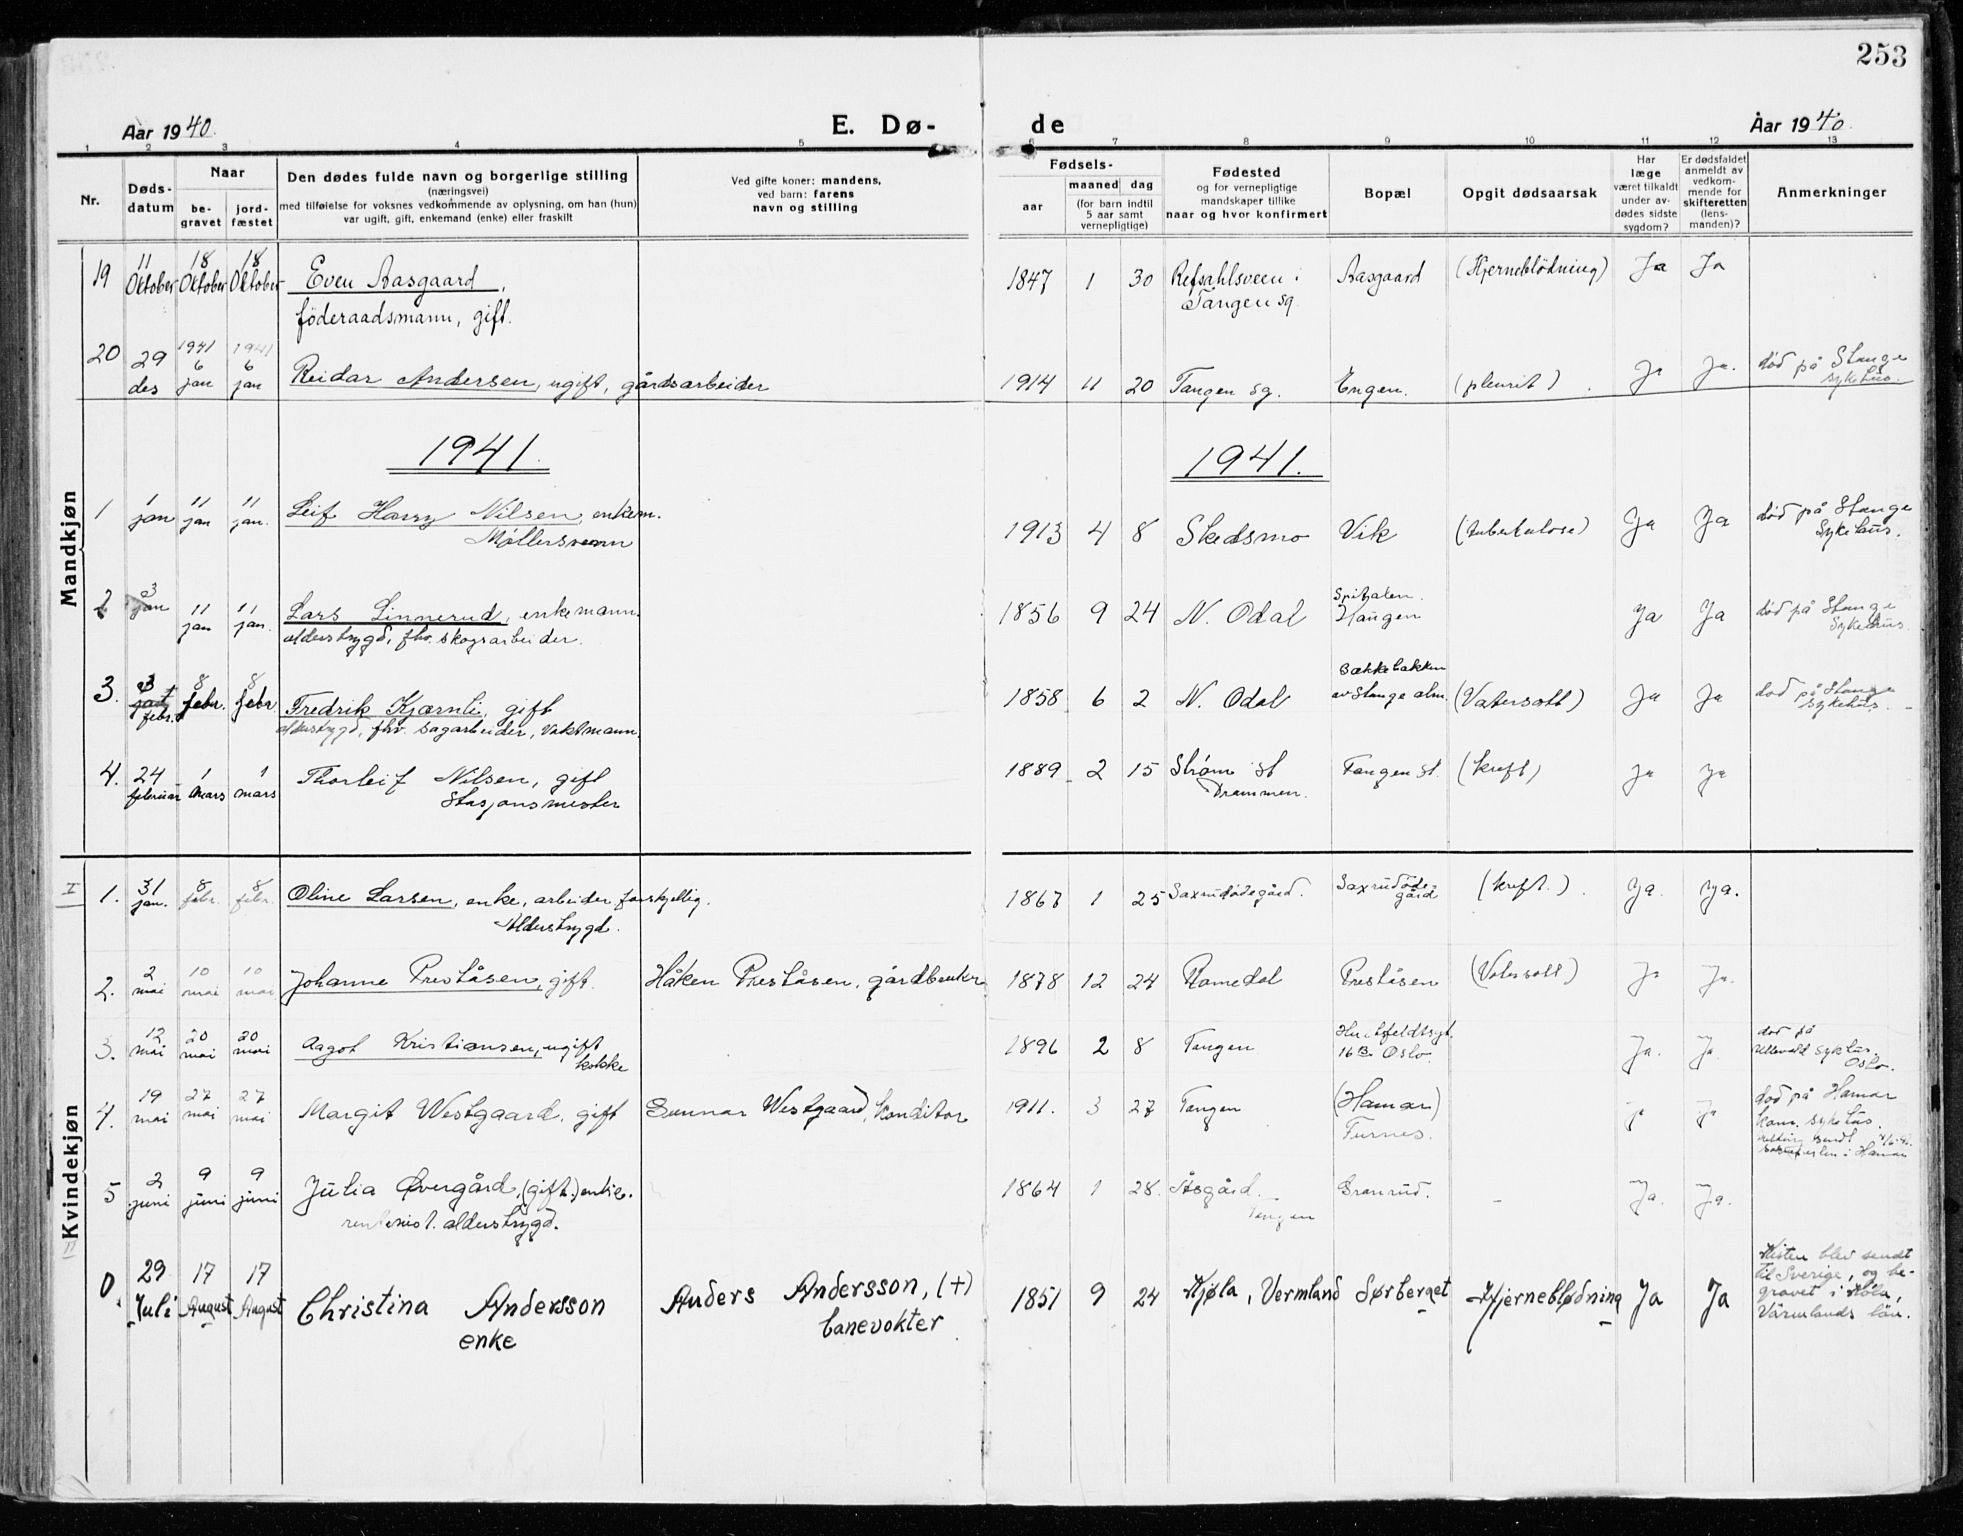 253
Aar 1940.
E. Dø-
de
Aar 1940.
1 2 3 4 5 6 7 8 9 10 11 12 13
Nr.
Døds-
datum
Naar
be-
gravet
jord-
fæstet
Den dødes fulde navn og borgerlige stilling
(næringsvei)
med tilføielse for voksnes vedkommende av oplysning, om han (hun)
var ugift, gift, enkemand (enke) eller fraskilt
Ved gifte koner: mandens,
ved barn: farens
navn og stilling
Fødsels-
aar
maaned dag
(for barn indtil
5 aar samt
vernepligtige)
Fødested
og for vernepligtige
mandskaper tillike
naar og hvor konfirmert
Bopæl
Opgit dødsaarsak
Har
læge
været tilkaldt
under av-
dødes sidste
sygdom?
Er dødsfaldet
anmeldt av
vedkom-
mende for
skifteretten
(lens-
manden)?
Anmerkninger
Mandkjøn
19 11 Oktober 18 Oktober 18 Oktober Even Aasgaard, 1847 1 30 Refsahlsveen i Aasgaard (Hjerneblödning) Ja Ja
föderaadsmann, gift. Tangen sg.
20 29 des 1941 6 jan 1941 6 jan Reidar Andersen, ugift, gårdsarbeider 1914 11 20 Tangen sg. Engen. (pleurit) Ja Ja. død på Stange
sykehus.
1941. 1941.
1 1 jan 11 jan 11 jan. Leif Harry Nilsen, enkem. 1913 4 8 Skedsmo Vik (tuberkulose) Ja Ja død på Stange
Møllersvenn Sykehus.
2 3 jan 11 jan 11 jan. Lars Linnerud, enkemann. 1856 9 24 N. Odal Spitalen. Haugen Ja Ja død på Stange
alderstrygd, fhv. skogsarbeider. Sykehus.
3. 3 febr. 8 febr. 8 febr Fredrik Kjærnli, gift 1858 6 2 N. Odal Bækkebakken av Stange alm. (Vatersott) Ja Ja død på Stange
alderstrygd, fhv. sagarbeider, vaktmann. sykehus.
4. 24 februar 1 mars 1 mars Thorleif Nilsen, gift 1889 2 15 Strøm Tangen st. (kreft) Ja Ja
Stasjonsmester Drammen.
Kvindekjøn
I
1. 31 jan. 8 febr. 8 febr. Oline Larsen, enke, arbeider forskjellig. 1867 1 25 Saxrudødegård. Saxrudøde-
gård (kreft.) Ja. Ja.
Alderstrygd.
2. 2 mai 10 mai 10 mai Johanne Preståsen, gift. Håken Preståsen, gårdbruker 1878 12 24 Romedal Preståsen (Vatersott) Ja Ja.
3. 12 mai 20 mai 20 mai Aagot Kristiansen, ugift 1896 2 8 Tangen Huitfeldtsgt. 16 B. Oslo. Ja. Ja død på
kokke Ullevål sykhus.
Oslo.
4. 19 mai 27 mai 27 mai Margit Westgaard, gift Gunnar Westgaard, konditor 1911. 3 27 Tangen (Hamar) Ja død på Hamar
Furnes. kom. sykehus.
sendt
i Hamar
5 2 juni 9 juni 9 juni Julia Øvergård, (gift.) enke. 1864 1 28. Åsgård. Granrud. Ja. Ja.
rentenist. alderstrygd. Tangen
II
0. 29 Juli 17 August 17 August Christina Andersson Anders Andersson, (+) 1851 9 24 Kjøla, Vermland Sørberget Hjerneblødning Ja Ja Kisten blev sendt
enke banevokter til Sverige, og be-
gravet i Köla,
Värmlands län.